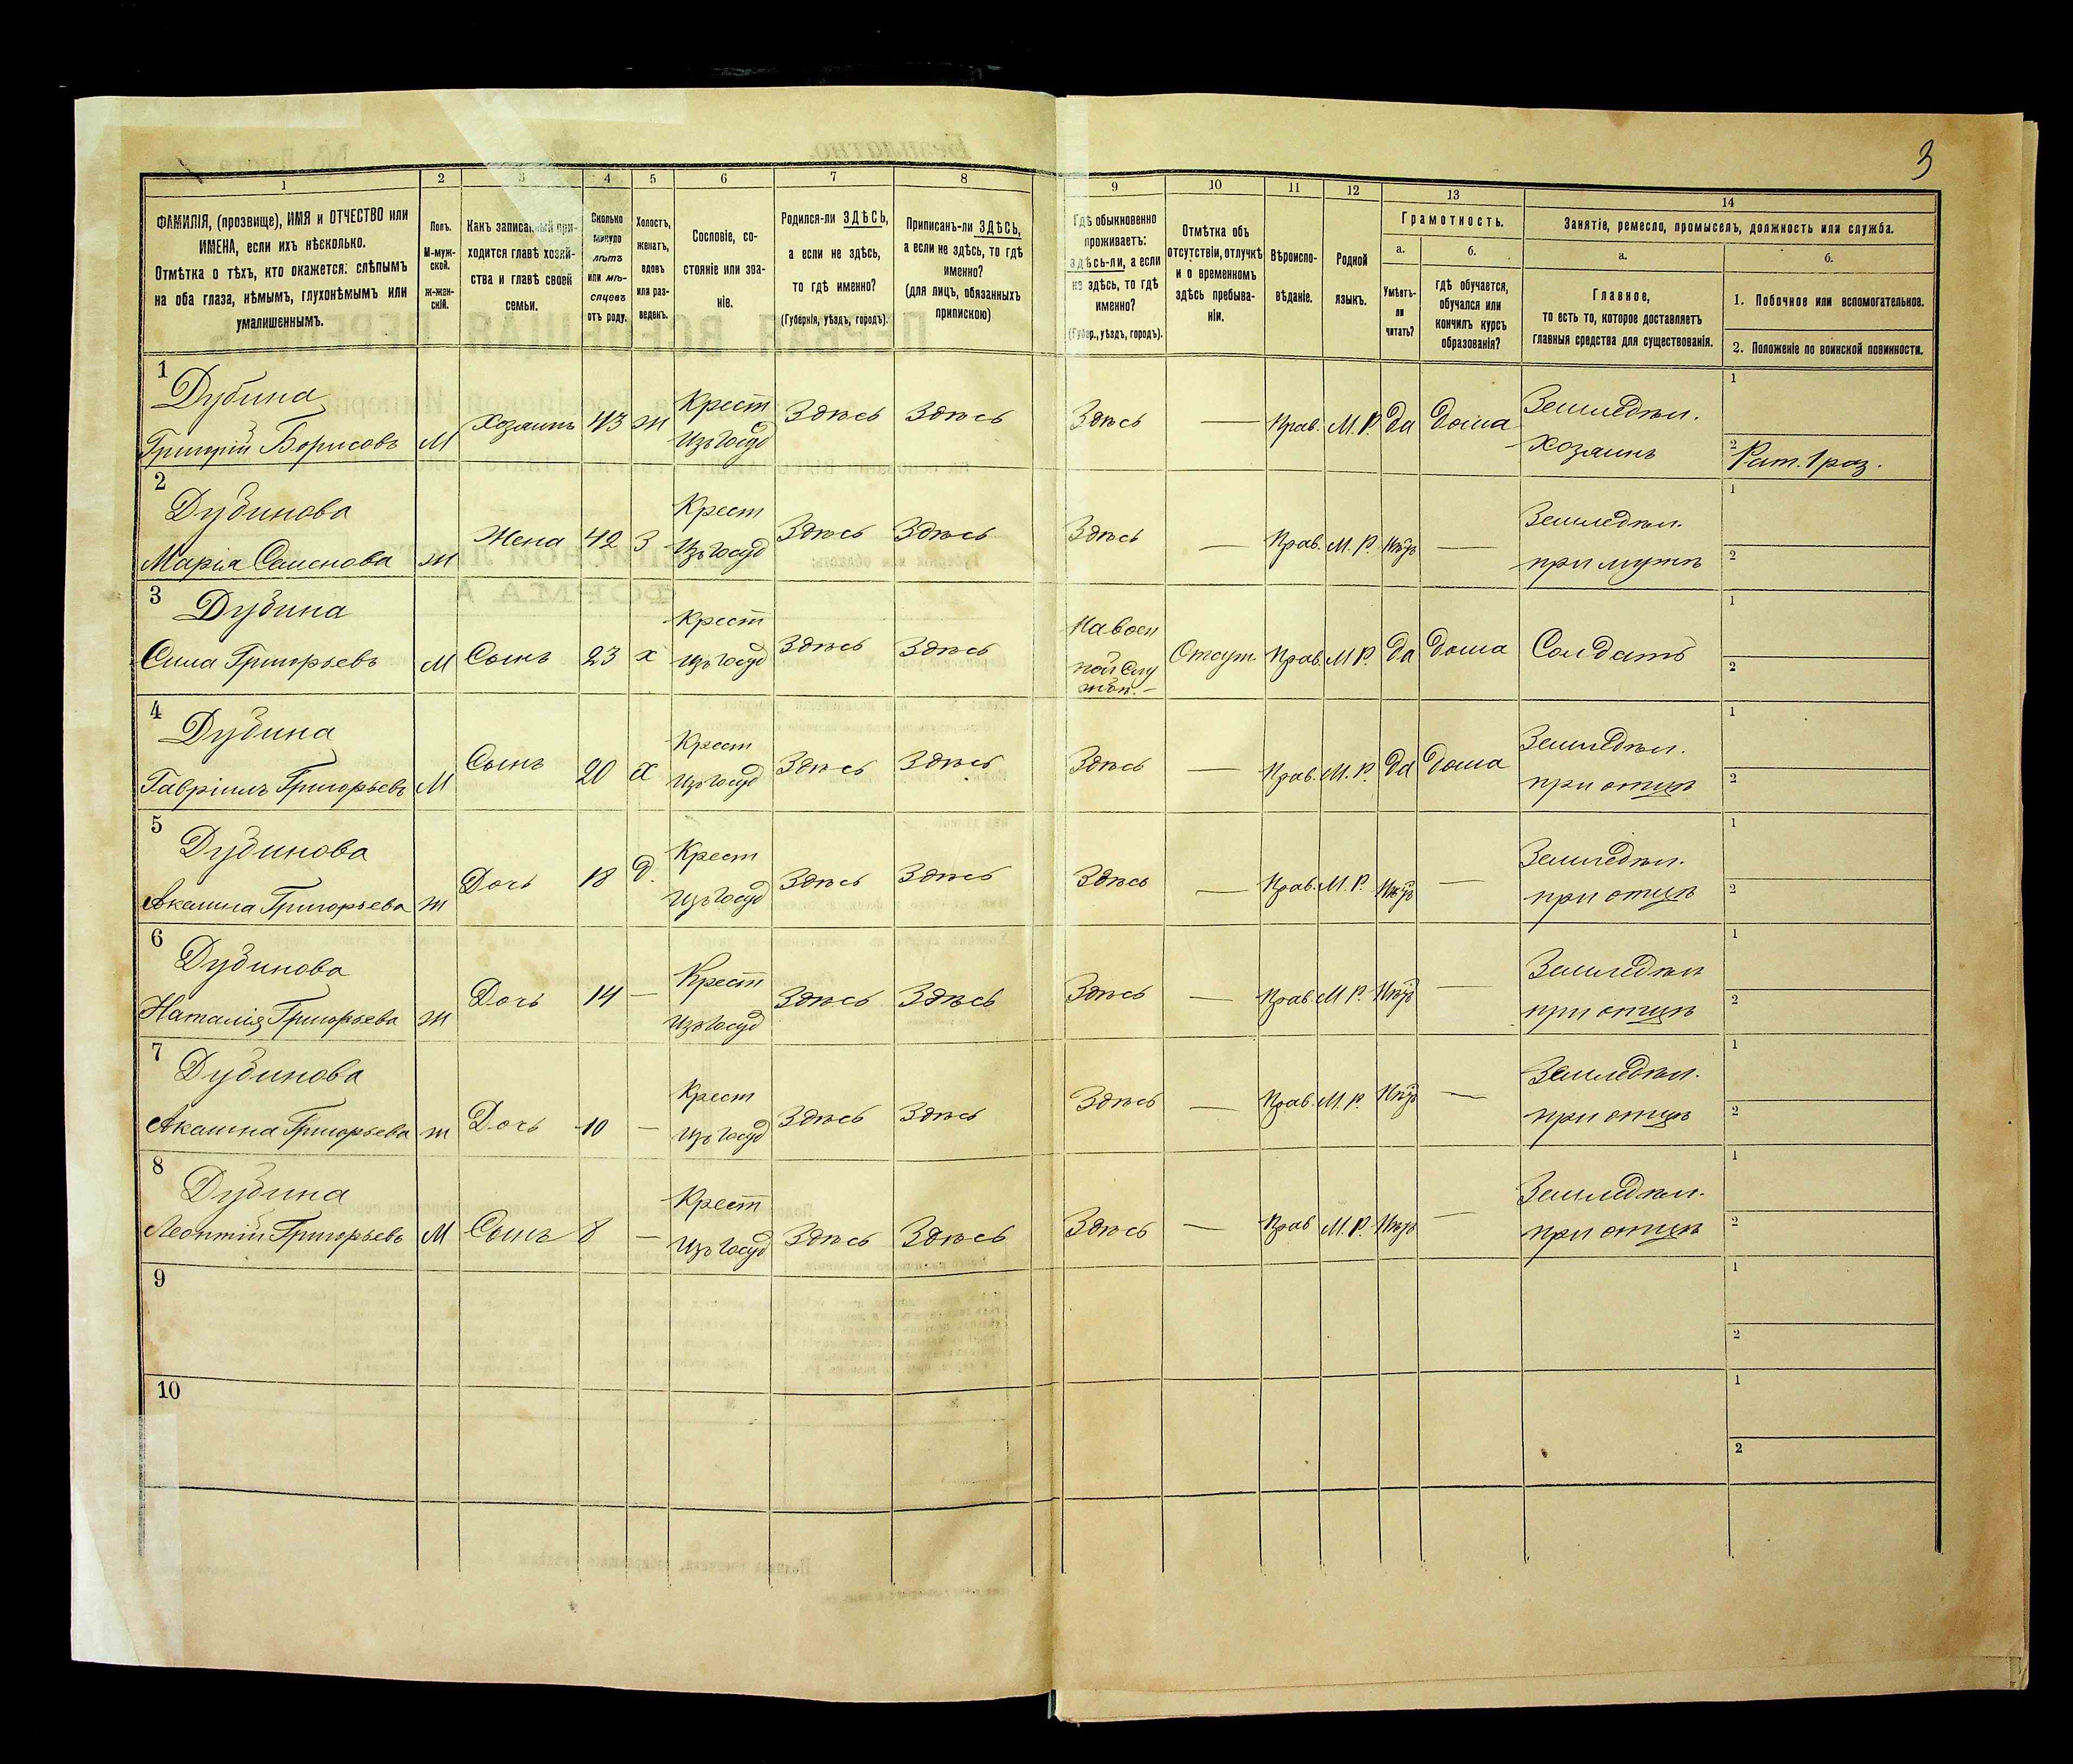 3
1 2 3 4 5 6 7 8 9 10 11 12 13 14
ФАМИЛІЯ, (прозвище), ИМЯ и ОТЧЕСТВО или
ИМЕНА, если ихъ нѣсколько.
Отмѣтка о тѣхъ, кто окажется: слѣпымъ
на оба глаза, нѣмымъ, глухонѣмымъ или
умалишеннымъ.
Полъ.
М-муж-
ской.
Ж-жен-
скій.
Какъ записанный при-
ходится главѣ хозяй-
ства и главѣ своей
семьи.
Сколько
минуло
лѣтъ
или мѣ-
сяцевъ
отъ роду.
Холостъ,
женатъ,
вдовъ
или раз-
веденъ.
Сословіе, со-
стояніе или зва-
ніе.
Родился-ли ЗДѢСЬ,
а если не здѣсь,
то гдѣ именно?
(Губернія, уѣздъ, городъ).
Приписанъ-ли ЗДѢСЬ,
а если не здѣсь, то гдѣ
именно?
(для лицъ, обязанныхъ
припискою)
Гдѣ обыкновенно
проживаетъ:
здѣсь-ли, а если
не здѣсь, то гдѣ
именно?
(Губер., уѣздъ, городъ).
Отмѣтка объ
отсутствіи, отлучкѣ
и о временномъ
здѣсь пребыва-
ніи.
Вѣроиспо-
вѣданіе.
Родной
языкъ.
Грамотность.
а.
Умѣетъ-
ли
читать?
б.
гдѣ обучается,
обучался или
кончилъ курсъ
образованія?
Занятіе, ремесло, промыселъ, должность или служба.
а.
Главное,
то есть то, которое доставляетъ
главныя средства для существованія.
б.
1. Побочное или вспомогательное.
2. Положеніе по воинской повинности.
1
Дубина
Григорій Борисовъ М Хозяинъ 43 ж Крест
Изъ Госуд Здѣсь Здѣсь Здѣсь — Прав. М.Р. Да Дома Земледѣл.
хозяинъ
1
2 Рат. 1 раз.
2
Дубинова
Марія Семенова ж Жена 42 З Крест
Изъ Госуд Здѣсь Здѣсь Здѣсь — Прав. М.Р. Нѣтъ — Земледѣл.
при мужѣ
1
2
3
Дубина
Сила Григорьевъ М Сынъ 23 х Крест
Изъ Госуд Здѣсь Здѣсь На воен
ной Слу
жбѣ. — Отсут. Прав. М.Р. Да Дома Солдатъ
1
2
4
Дубина
Гавріилъ Григорьевъ М Сынъ 20 х Крест
Изъ Госуд Здѣсь Здѣсь Здѣсь — Прав. М.Р. Да Дома Земледѣл.
при отцѣ
1
2
5
Дубинова
Акилина Григорьева ж Дочь 18 д. Крест
Изъ Госуд Здѣсь Здѣсь Здѣсь — Прав. М.Р. Нѣтъ — Земледѣл.
при отцѣ
1
2
6
Дубинова
Наталія Григорьева ж Дочь 14 — Крест
Изъ Госуд Здѣсь Здѣсь Здѣсь — Прав. М.Р. Нѣтъ — Земледѣл
при отцѣ
1
2
7
Дубинова
Григорьева ж Дочь 10 — Крест
Изъ Госуд Здѣсь Здѣсь Здѣсь — Прав. М.Р. Нѣтъ — Земледѣл.
при отцѣ
1
2
8
Дубина
Леонтій Григорьевъ М Сынъ 8 — Крест
Изъ Госуд Здѣсь Здѣсь Здѣсь — Прав М.Р. Нѣтъ — Земледѣл.
при отцѣ
1
2
9
1
2
10
1
2